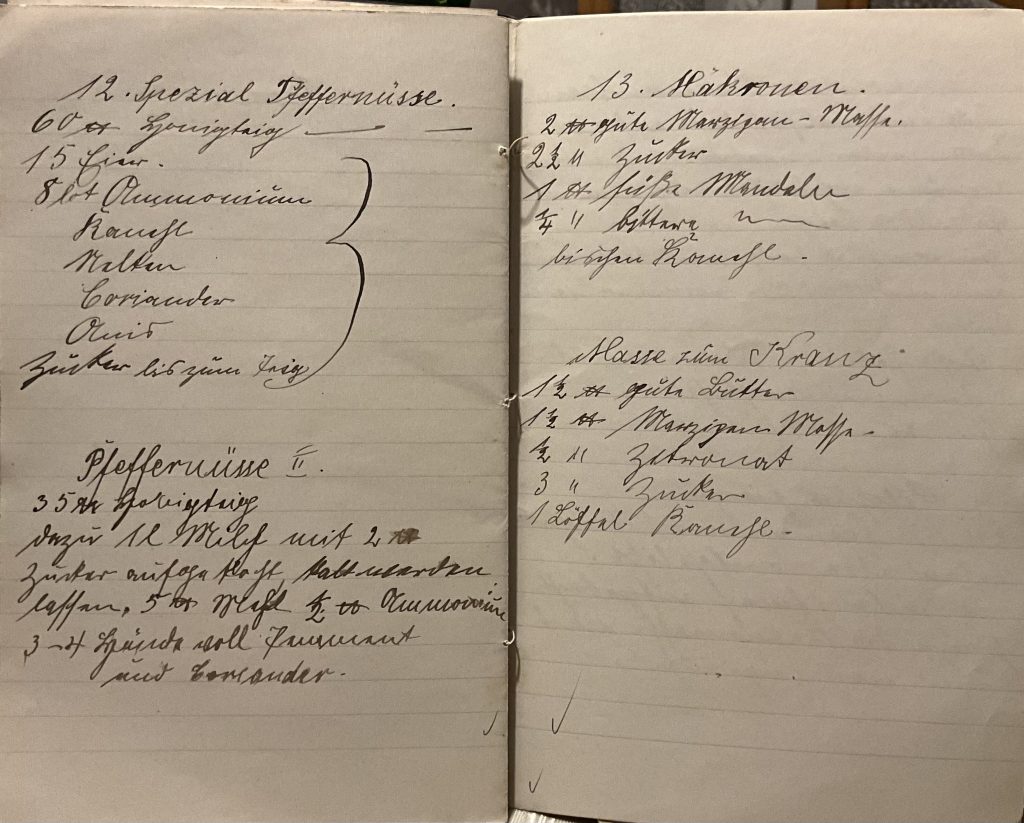 12. Spezial Pfeffernüsse.
60 ℔ Honigteig — —
15 Eier.
8 lot Ammonium
Kanehl
Nelken
Coriander
Anis
Zucker bis zum Teig
Pfeffernüsse II.
35 ℔ Honigteig
dazu 1 l Milch mit 2 ℔
Zucker aufgekocht, kalt werden
lassen, 5 ℔ Mehl ½ ℔ Ammonium
3–4 Hände voll
und Coriander.
13. Makronen.
2 ℔ gute Marzipan-Masse.
2½ " Zucker
1 ℔ süße Mandeln
¼ " bittere
bischen Kanehl.
Masse zum Kranz
1½ ℔ gute Butter
1½ ℔ Marzipan Masse
½ " Zitronat
3 " Zucker
1 Löffel Kanehl.